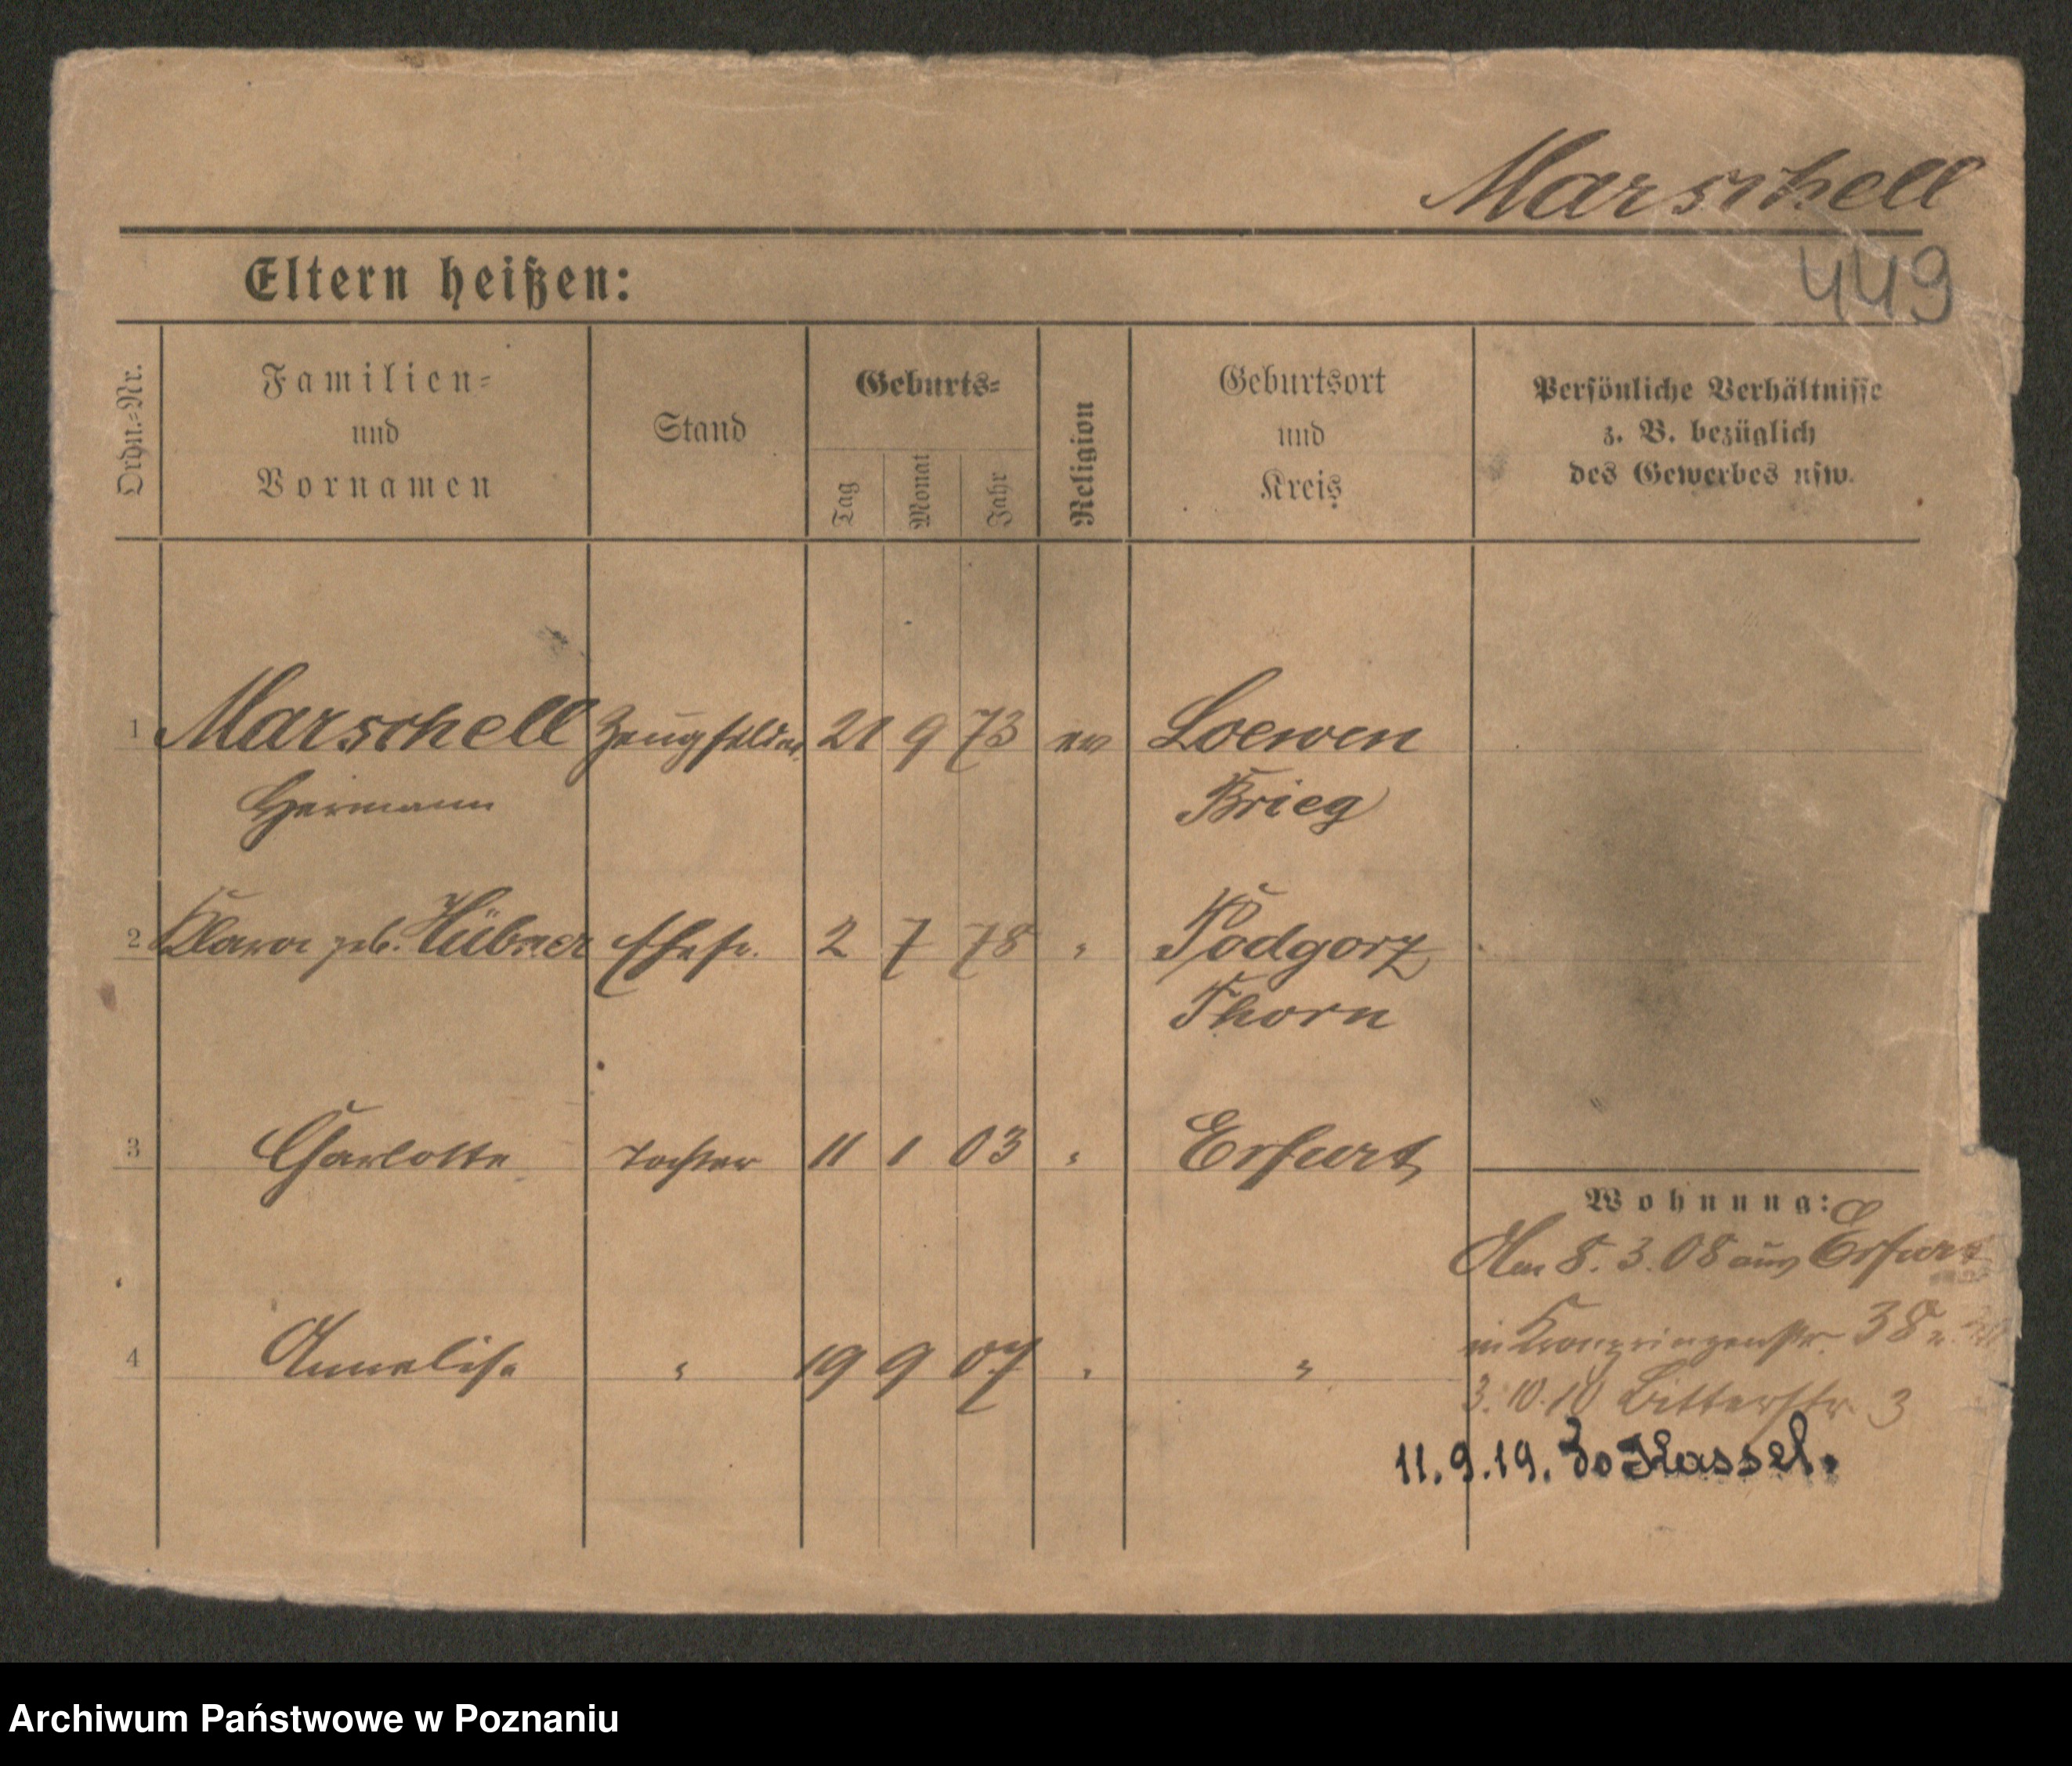 Marschell
449
Eltern heißen:
Ordn.=Nr.
Familien=
und
Vornamen
Stand
Geburts=
Tag
Monat
Jahr
Religion
Geburtsort
und
Kreis
Persönliche Verhältnisse
z. B. bezüglich
des Gewerbes usw.
1 Marschell 21 9 73 ev Loewen
Hermann Brieg
2 Klara geb. Hübner Ehefr. 2 7 78 " Podgorz
Thorn
3 Charlotte Tochter 11 1 03 " Erfurt
Wohnung:
Am 8. 3. 08 aus Erfurt
4 Annelise " 19 9 07 " "
in Kronprinzenstr. 38
3. 10. 10 Bitterstr. 3
11. 9. 19. Kassel.
Archiwum Państwowe w Poznaniu